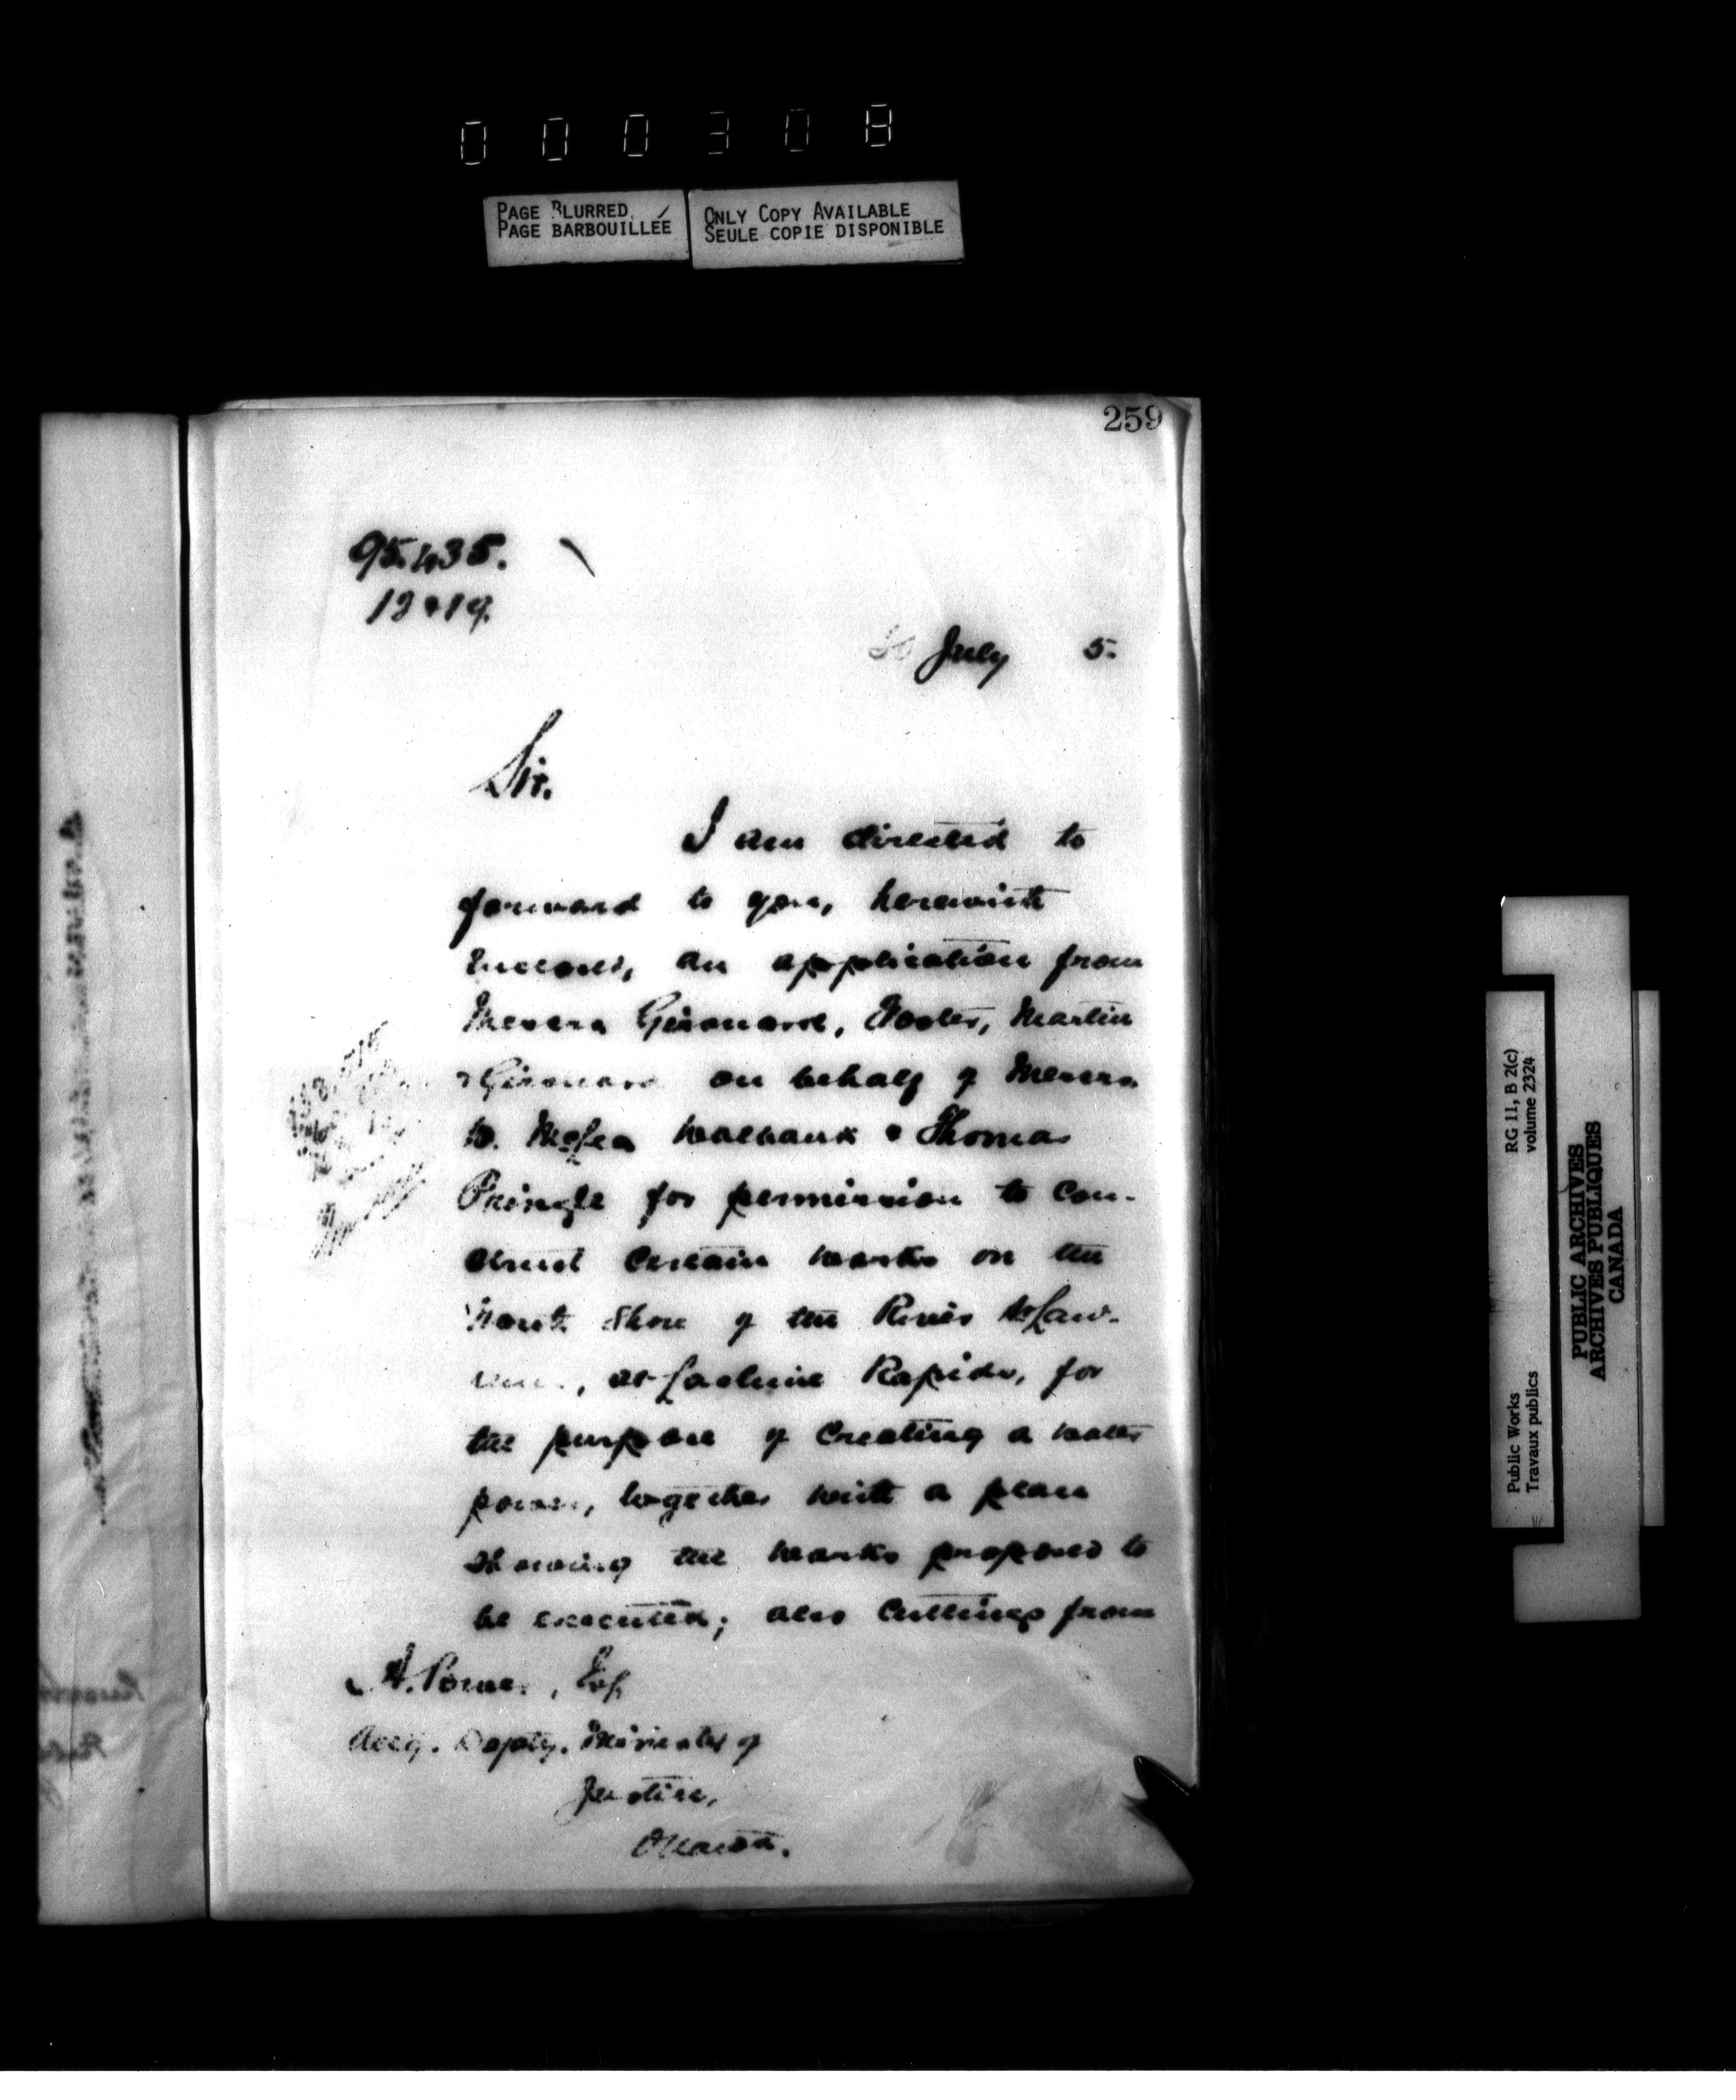 000308
PAGE BLURRED
PAGE BARBOUILLÉE
ONLY COPY AVAILABLE
SEULE COPIE DISPONIBLE
259
95.435.
July 5.
Sir.
I am directed to
forward to you, herewith
inclosed, an application from
Messrs Girouard, Foster, Martin
& Girouard on behalf of Messrs
W. McLea Walbank & Thomas
Pringle for permission to con-
struct certain works on the
North Shore of the River St Law-
, at Lachine Rapids, for
the purpose of creating a water
power, together with a plan
showing the works proposed to
be executed; also cuttings from
A. Power, Esq
Actg. Depty. Minister of
Justice,
Ottawa.
Public Works
Travaux publics
RG 11, B 2(c)
volume 2324
PUBLIC ARCHIVES
ARCHIVES PUBLIQUES
CANADA